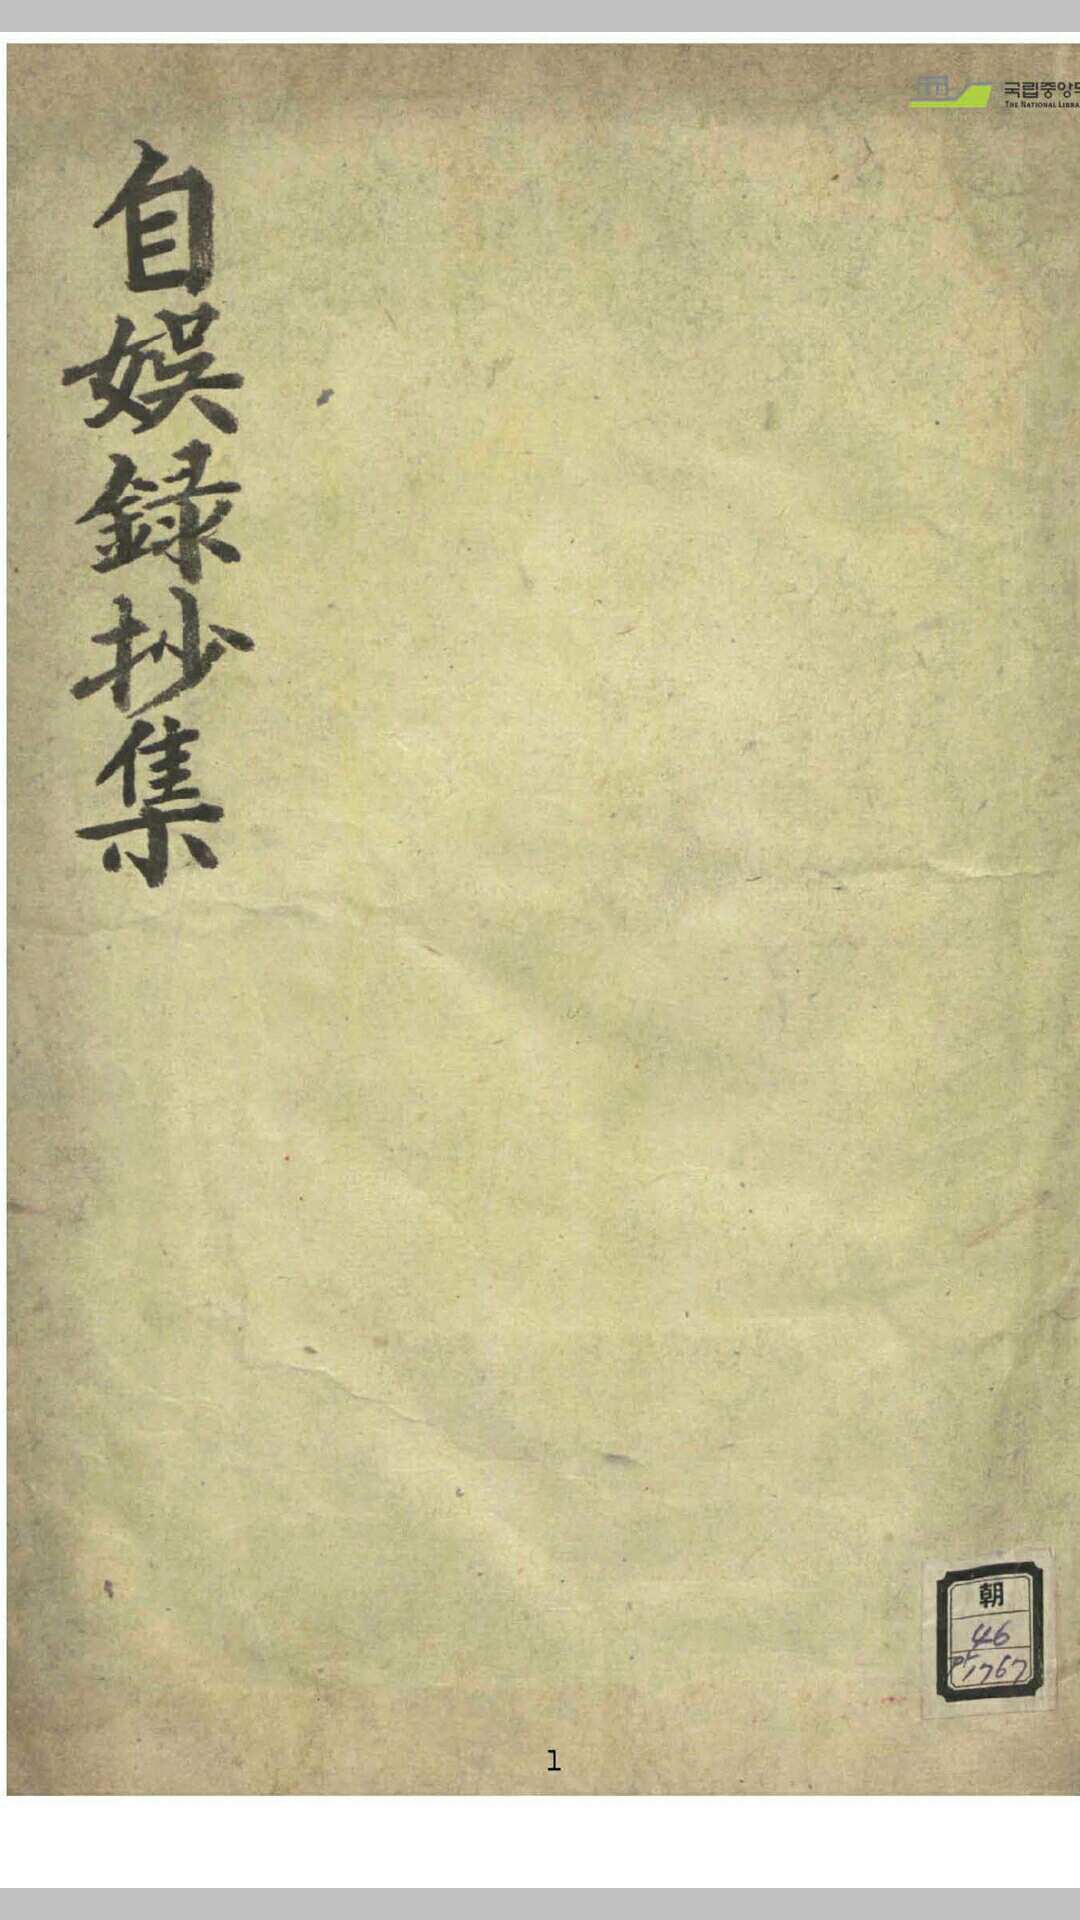 국립중앙
THE NATIONAL LIBRA
自娛錄抄集
朝
46
1767
1